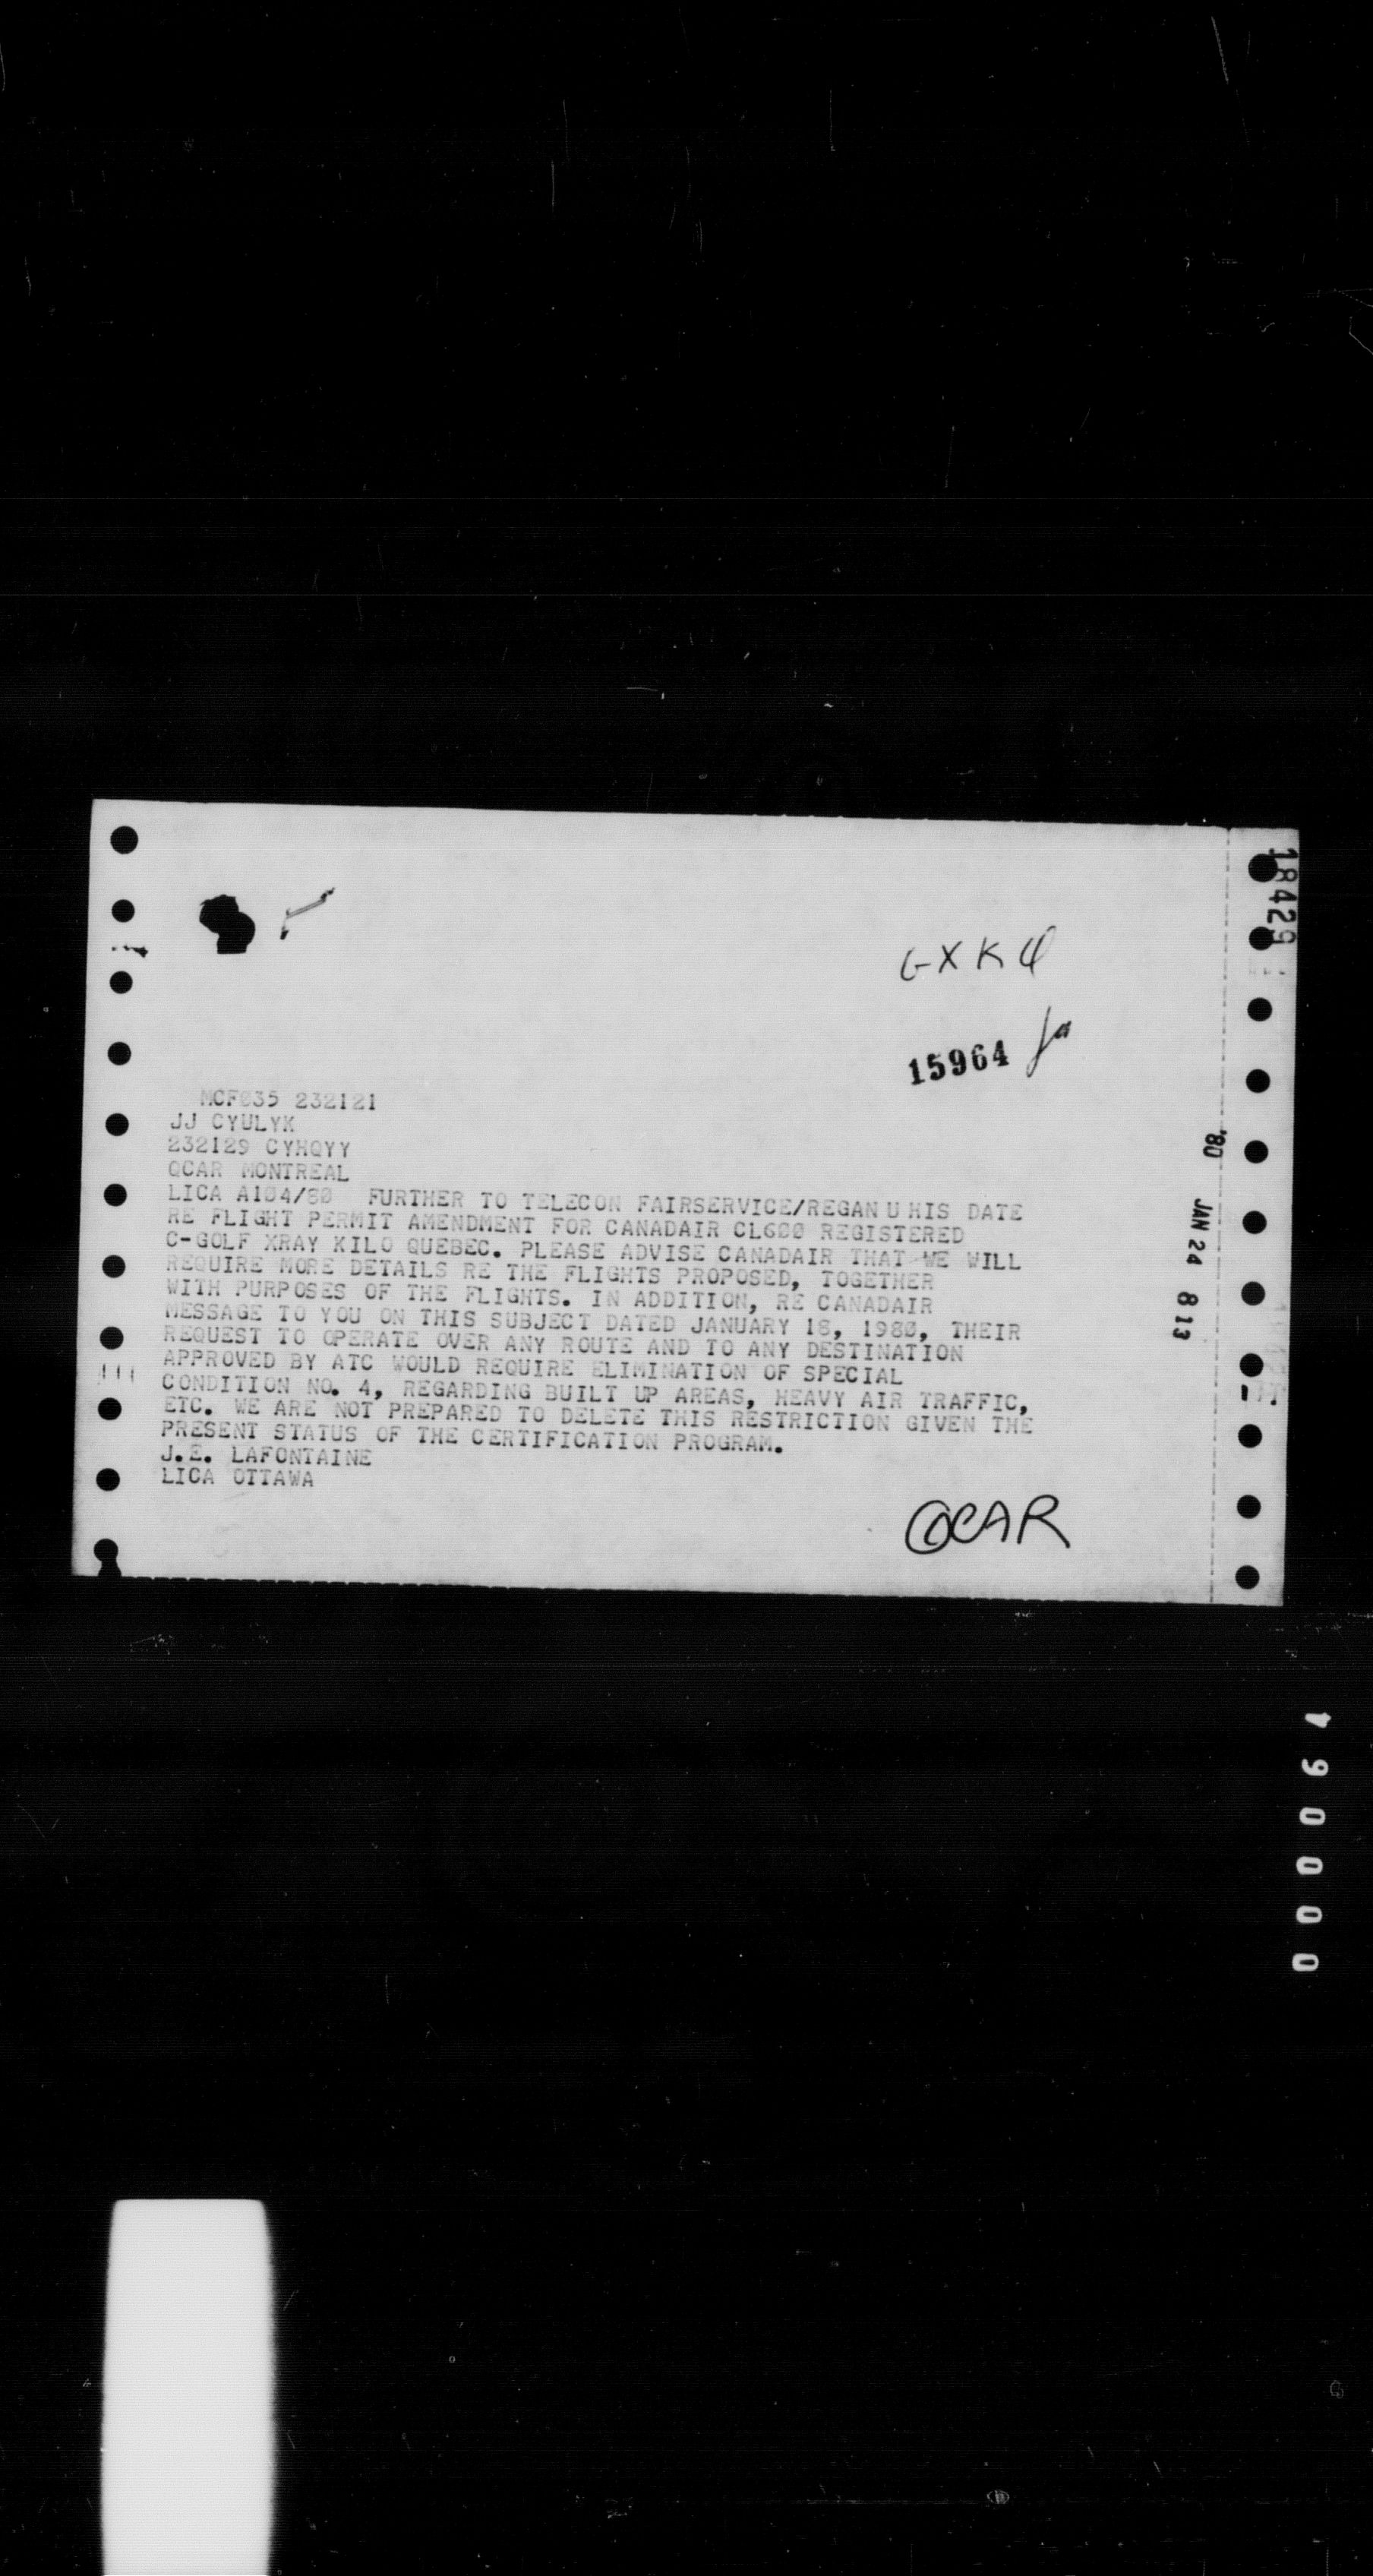 18429
GXKQ
15964
'80 JAN 24 8 13
MCF035 232121
JJ CYULYK
232129 CYHQYY
QCAR MONTREAL
LICA A104/80 FURTHER TO TELECON FAIRSERVICE/REGAN U HIS DATE
RE FLIGHT PERMIT AMENDMENT FOR CANADAIR CL600 REGISTERED
C-GOLF XRAY KILO QUEBEC. PLEASE ADVISE CANADAIR THAT WE WILL
REQUIRE MORE DETAILS RE THE FLIGHTS PROPOSED, TOGETHER
WITH PURPOSES OF THE FLIGHTS. IN ADDITION, RE CANADAIR
MESSAGE TO YOU ON THIS SUBJECT DATED JANUARY 18, 1980, THEIR
REQUEST TO OPERATE OVER ANY ROUTE AND TO ANY DESTINATION
APPROVED BY ATC WOULD REQUIRE ELIMINATION OF SPECIAL
CONDITION NO. 4, REGARDING BUILT UP AREAS, HEAVY AIR TRAFFIC,
ETC. WE ARE NOT PREPARED TO DELETE THIS RESTRICTION GIVEN THE
PRESENT STATUS OF THE CERTIFICATION PROGRAM.
J.E. LAFONTAINE
LICA OTTAWA
QCAR
000064